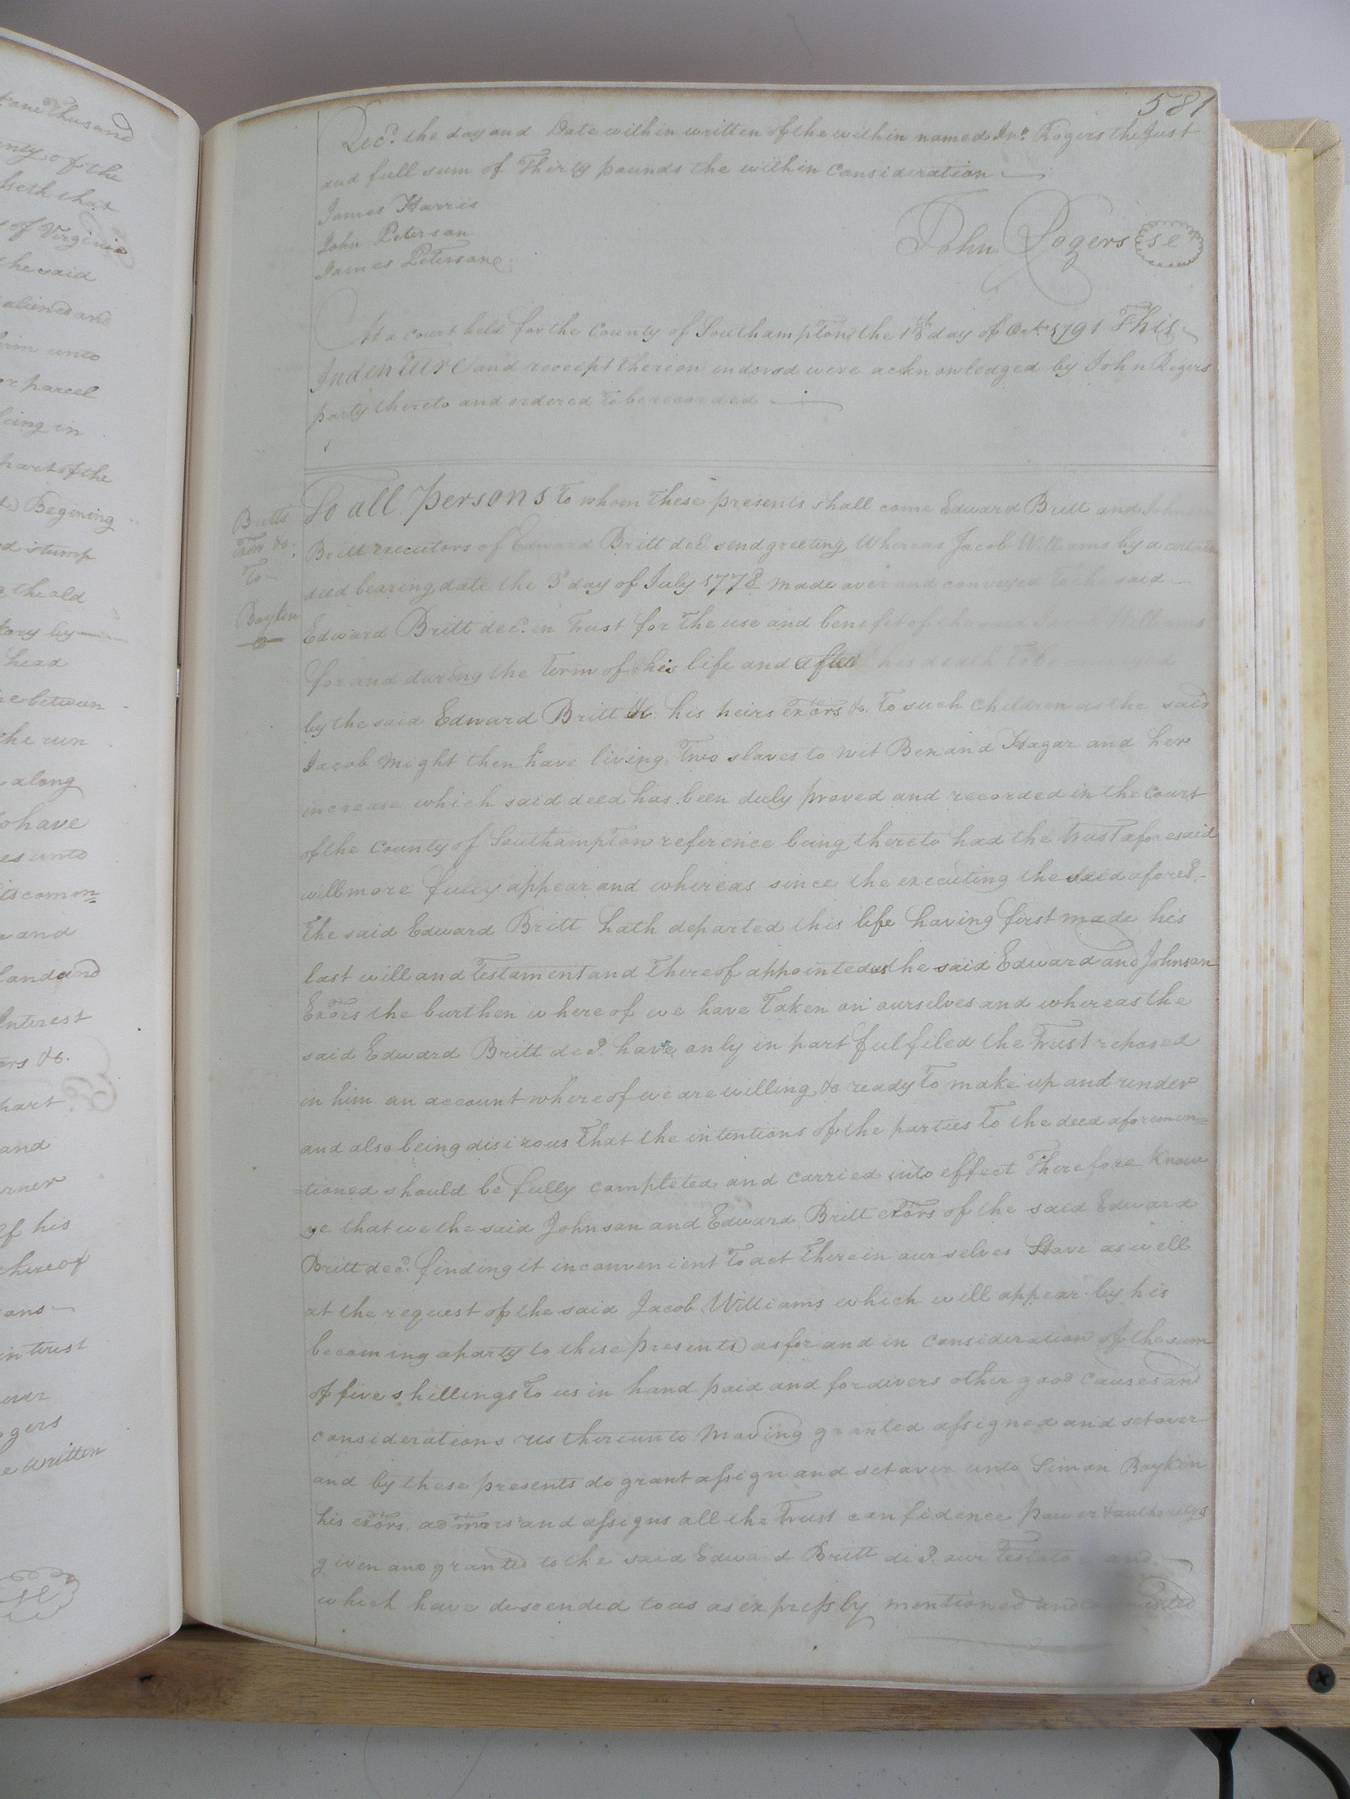 581
Rec.d the day and Date within written of the within named Jn.o Rogers the Just
and full sum of Thirty pounds the within Consideration
James Harris
John Peterson
James Peterson
John Rogers
At a Court held for the County of Southampton the 13 day of Oct. 1791 This
Indenture and receipt thereon indorsd were acknowledged by John Rogers
party thereto and ordered to be recorded
To all persons to whom these presents shall come Edward Britt and Johnson
Britt executors of Edward Britt decd send greeting Whereas Jacob Williams by a certain
deed bearing date the day of July 1778 made over and conveyed to the said
Edward Britt dec.d in trust for the use and benefit of the said Jacob Williams
for and during the term of his life and after his death to be conveyed
by the said Edward Britt &c. his heirs exors &c. to such Children as the said
Jacob might then have living, Two slaves to wit Ben and Hagar and her
increase which said deed has been duly proved and recorded in the Court
of the County of Southampton reference being thereto had the trust aforesaid
will more fully appear and whereas since the executing the deed afores.d
The said Edward Britt hath departed this life having first made his
last will and testament and thereof appointed us the said Edward and Johnson
Exors the burthen whereof we have taken on ourselves and whereas the
said Edward Britt dec.d have only in part fulfiled the trust reposed
in him an account whereof we are willing & ready to make up and render
and also being disirous that the intentions of the parties to the deed aforemen=
tioned should be fully completed and carried into effect Therefore Know
ye that we the said Johnson and Edward Britt exors of the said Edward
Britt dec.d finding it inconvenient to act therein our selves Have as well
at the request of the said Jacob Williams which will appear by his
becoming a party to these presents as for and in consideration of the sum
of five shillings to us in hand paid and for divers other good causes and
considerations us thereunto moving granted assigned and set over
and by these presents do grant assign and set over unto Simon Boykin
his exors admors and assigns all the trust confidence power & authority
given and granted to the said Edward Britt de.d our Testator and
which have descended to us as expressly mentioned and
Britts
Exor &c.
To
Boykin